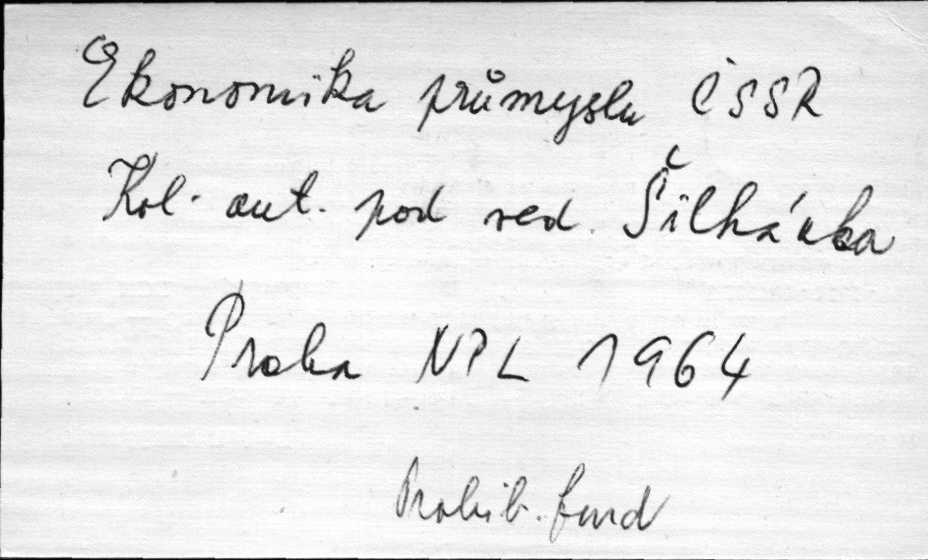 Ekonomika průmyslu ČSSR
Kol. aut. pod ved. Šilhánka
Praha NPL 1964
Prohib. fond